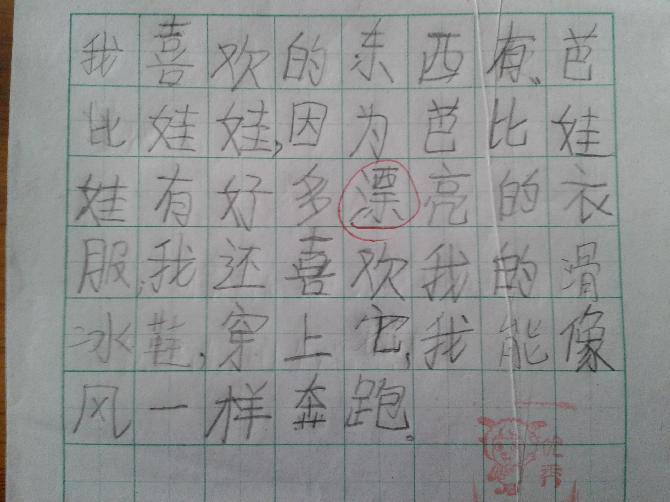 我喜欢的东西有、芭
比娃娃,因为芭比娃
娃有好多漂亮的衣
服,我还喜欢我的滑
冰鞋,穿上它,我能像
风一样奔跑。
优秀